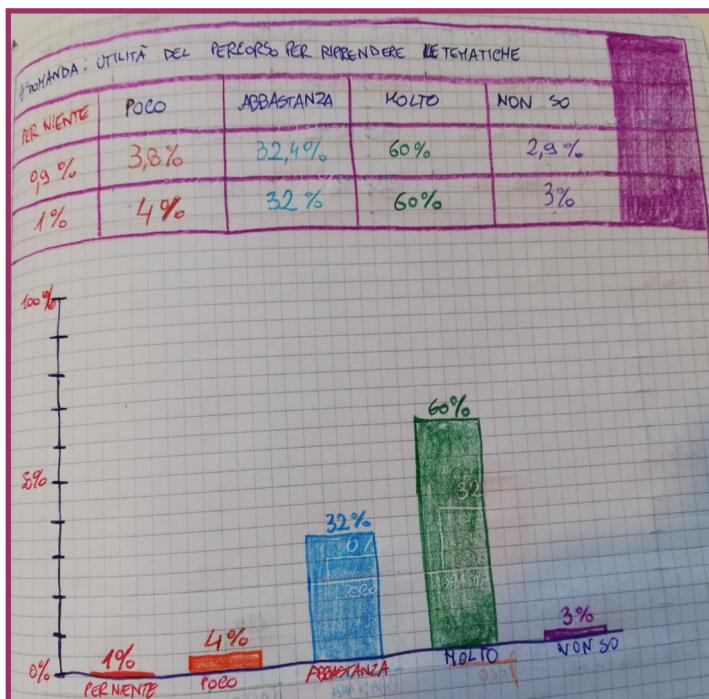 1° DOMANDA: UTILITÀ DEL PERCORSO PER RIPRENDERE LE TEMATICHE
PER NIENTE POCO ABBASTANZA MOLTO NON SO
0,9% 3,8% 32,4% 60% 2,9%
1% 4% 32% 60% 3%
100%
60%
50%
32%
4%
3%
1%
0%
PER NIENTE POCO ABBASTANZA MOLTO NON SO